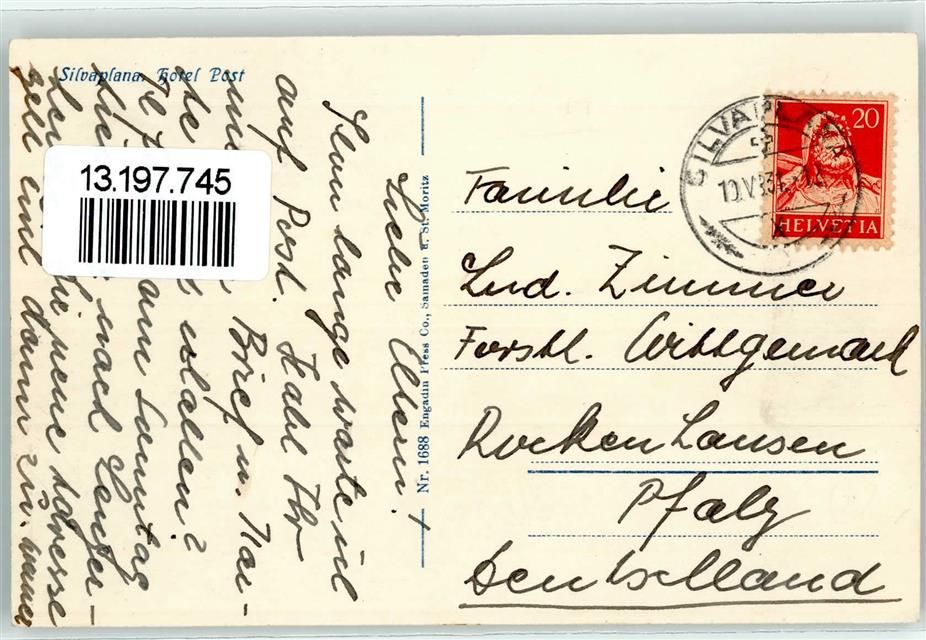 Silvaplana. Hotel Post
13.197.745
Liebe Eltern!
Schon lange warte ich
auf Post. Habt Ihr
Brief u. Kar-
erhalten?
am Sonntag
nach Lenzer-
neue Adresse
und dann
Nr. 1688 Engadin Press Co., Samaden u. St. Moritz
SILVAPLANA
10.V.33
20
HELVETIA
Familie
Lud. Zimmer
Forstl. Wittgemark
Rockenhausen
Pfalz
Deutschland